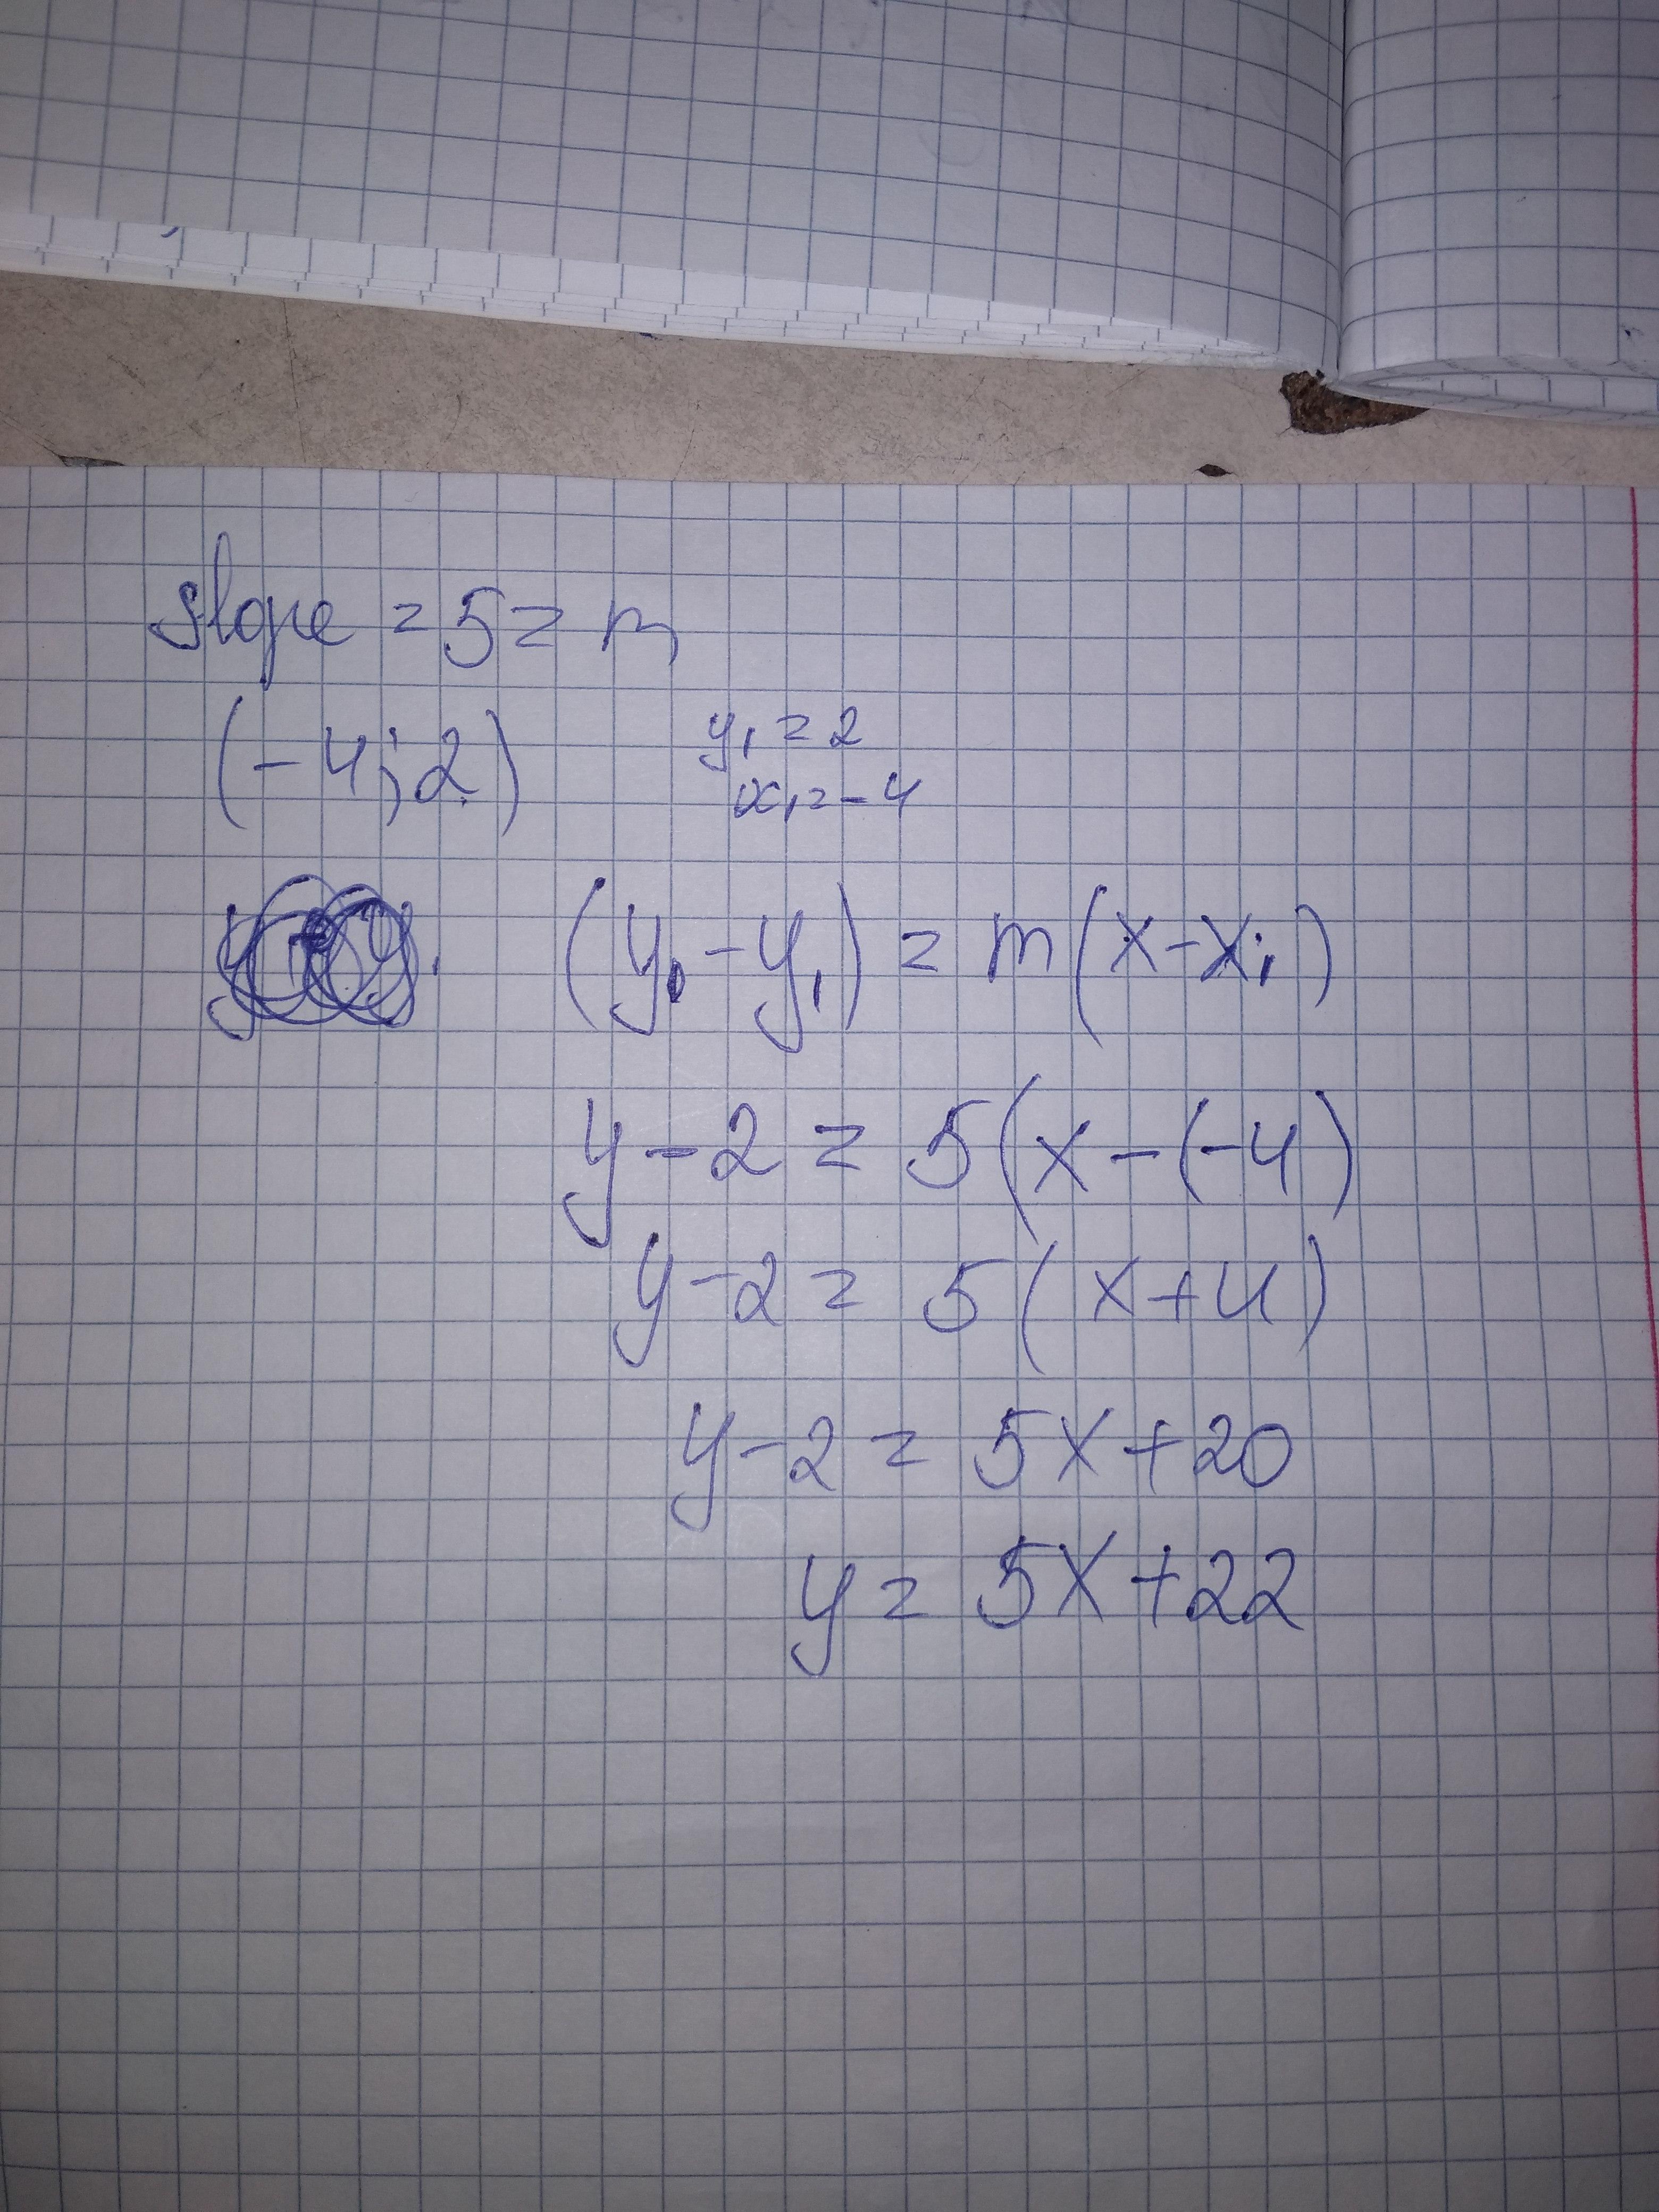 slope = 5 = m
(-4; 2) y₁ = 2
x₁ = -4
(y - y₁) = m(x - x₁)
y - 2 = 5(x - (-4)
y - 2 = 5(x + 4)
y - 2 = 5x + 20
y = 5x + 22